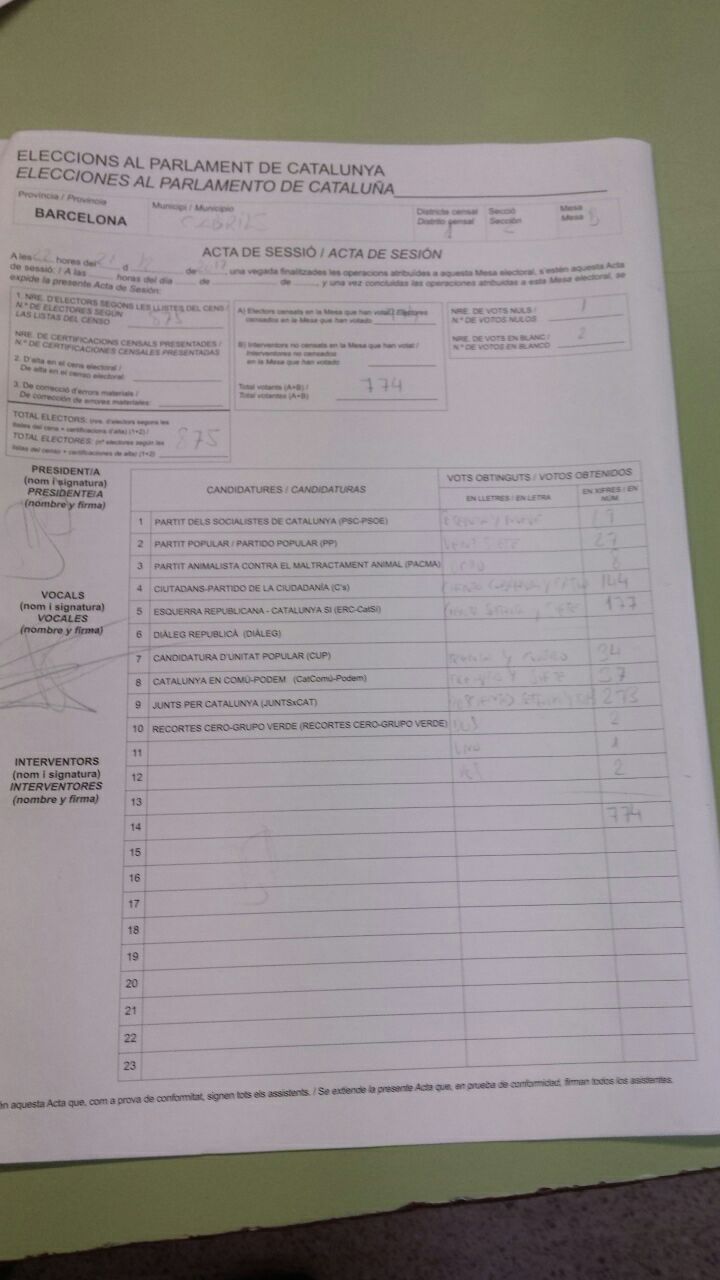 ELECCIONS AL PARLAMENT DE CATALUNYA
ELECCIONES AL PARLAMENTO DE CATALUÑA
Província / Provincia
BARCELONA
Municipi / Municipio
CABRILS
Districte censal
Distrito censal
Secció
Sección
2
Mesa
Mesa
B
ACTA DE SESSIÓ / ACTA DE SESIÓN
A les 22 hores del 21 d de 2017 una vegada finalitzades les operacions atribuïdes a aquesta Mesa electoral, s'estén aquesta Acta
de sessió: / A las horas del día de de , y una vez concluidas las operaciones atribuidas a esta Mesa electoral, se
expide la presente Acta de Sesión:
1. NRE. D'ELECTORS SEGONS LES LLISTES DEL CENS /
N.º DE ELECTORES SEGÚN
LAS LISTAS DEL CENSO 875
NRE. DE CERTIFICACIONS CENSALS PRESENTADES /
N.º DE CERTIFICACIONES CENSALES PRESENTADAS
2. D'alta en el cens electoral /
De alta en el censo electoral:
3. De correcció d'errors materials /
De corrección de errores materiales:
TOTAL ELECTORS: (nre. d'electors segons les
llistes del cens + certificacions d'alta) (1+2) /
TOTAL ELECTORES: (nº electores según las
listas del censo + certificaciones de alta) (1+2) 875
A) Electors censats en la Mesa que han votat / Electores
censados en la Mesa que han votado
B) Interventors no censats en la Mesa que han votat /
Interventores no censados
en la Mesa que han votado
Total votants (A+B) /
Total votantes (A+B) 774
NRE. DE VOTS NULS /
N.º DE VOTOS NULOS 1
NRE. DE VOTS EN BLANC /
N.º DE VOTOS EN BLANCO 2
PRESIDENT/A
(nom i signatura)
PRESIDENTE/A
(nombre y firma)
VOCALS
(nom i signatura)
VOCALES
(nombre y firma)
INTERVENTORS
(nom i signatura)
INTERVENTORES
(nombre y firma)
CANDIDATURES / CANDIDATURAS
VOTS OBTINGUTS / VOTOS OBTENIDOS
EN LLETRES / EN LETRA
EN XIFRES / EN NÚM.
1 PARTIT DELS SOCIALISTES DE CATALUNYA (PSC-PSOE)
2 PARTIT POPULAR / PARTIDO POPULAR (PP) 27
3 PARTIT ANIMALISTA CONTRA EL MALTRACTAMENT ANIMAL (PACMA) 8
4 CIUTADANS-PARTIDO DE LA CIUDADANÍA (C's) 144
5 ESQUERRA REPUBLICANA - CATALUNYA SÍ (ERC-CatSí) 177
6 DIÀLEG REPUBLICÀ (DIÀLEG)
7 CANDIDATURA D'UNITAT POPULAR (CUP) 34
8 CATALUNYA EN COMÚ-PODEM (CatComú-Podem) 37
9 JUNTS PER CATALUNYA (JUNTSxCAT) 273
10 RECORTES CERO-GRUPO VERDE (RECORTES CERO-GRUPO VERDE) DOS 2
11 UNO 1
12 2
13
14 774
15
16
17
18
19
20
21
22
23
én aquesta Acta que, com a prova de conformitat, signen tots els assistents. / Se extiende la presente Acta que, en prueba de conformidad, firman todos los asistentes.